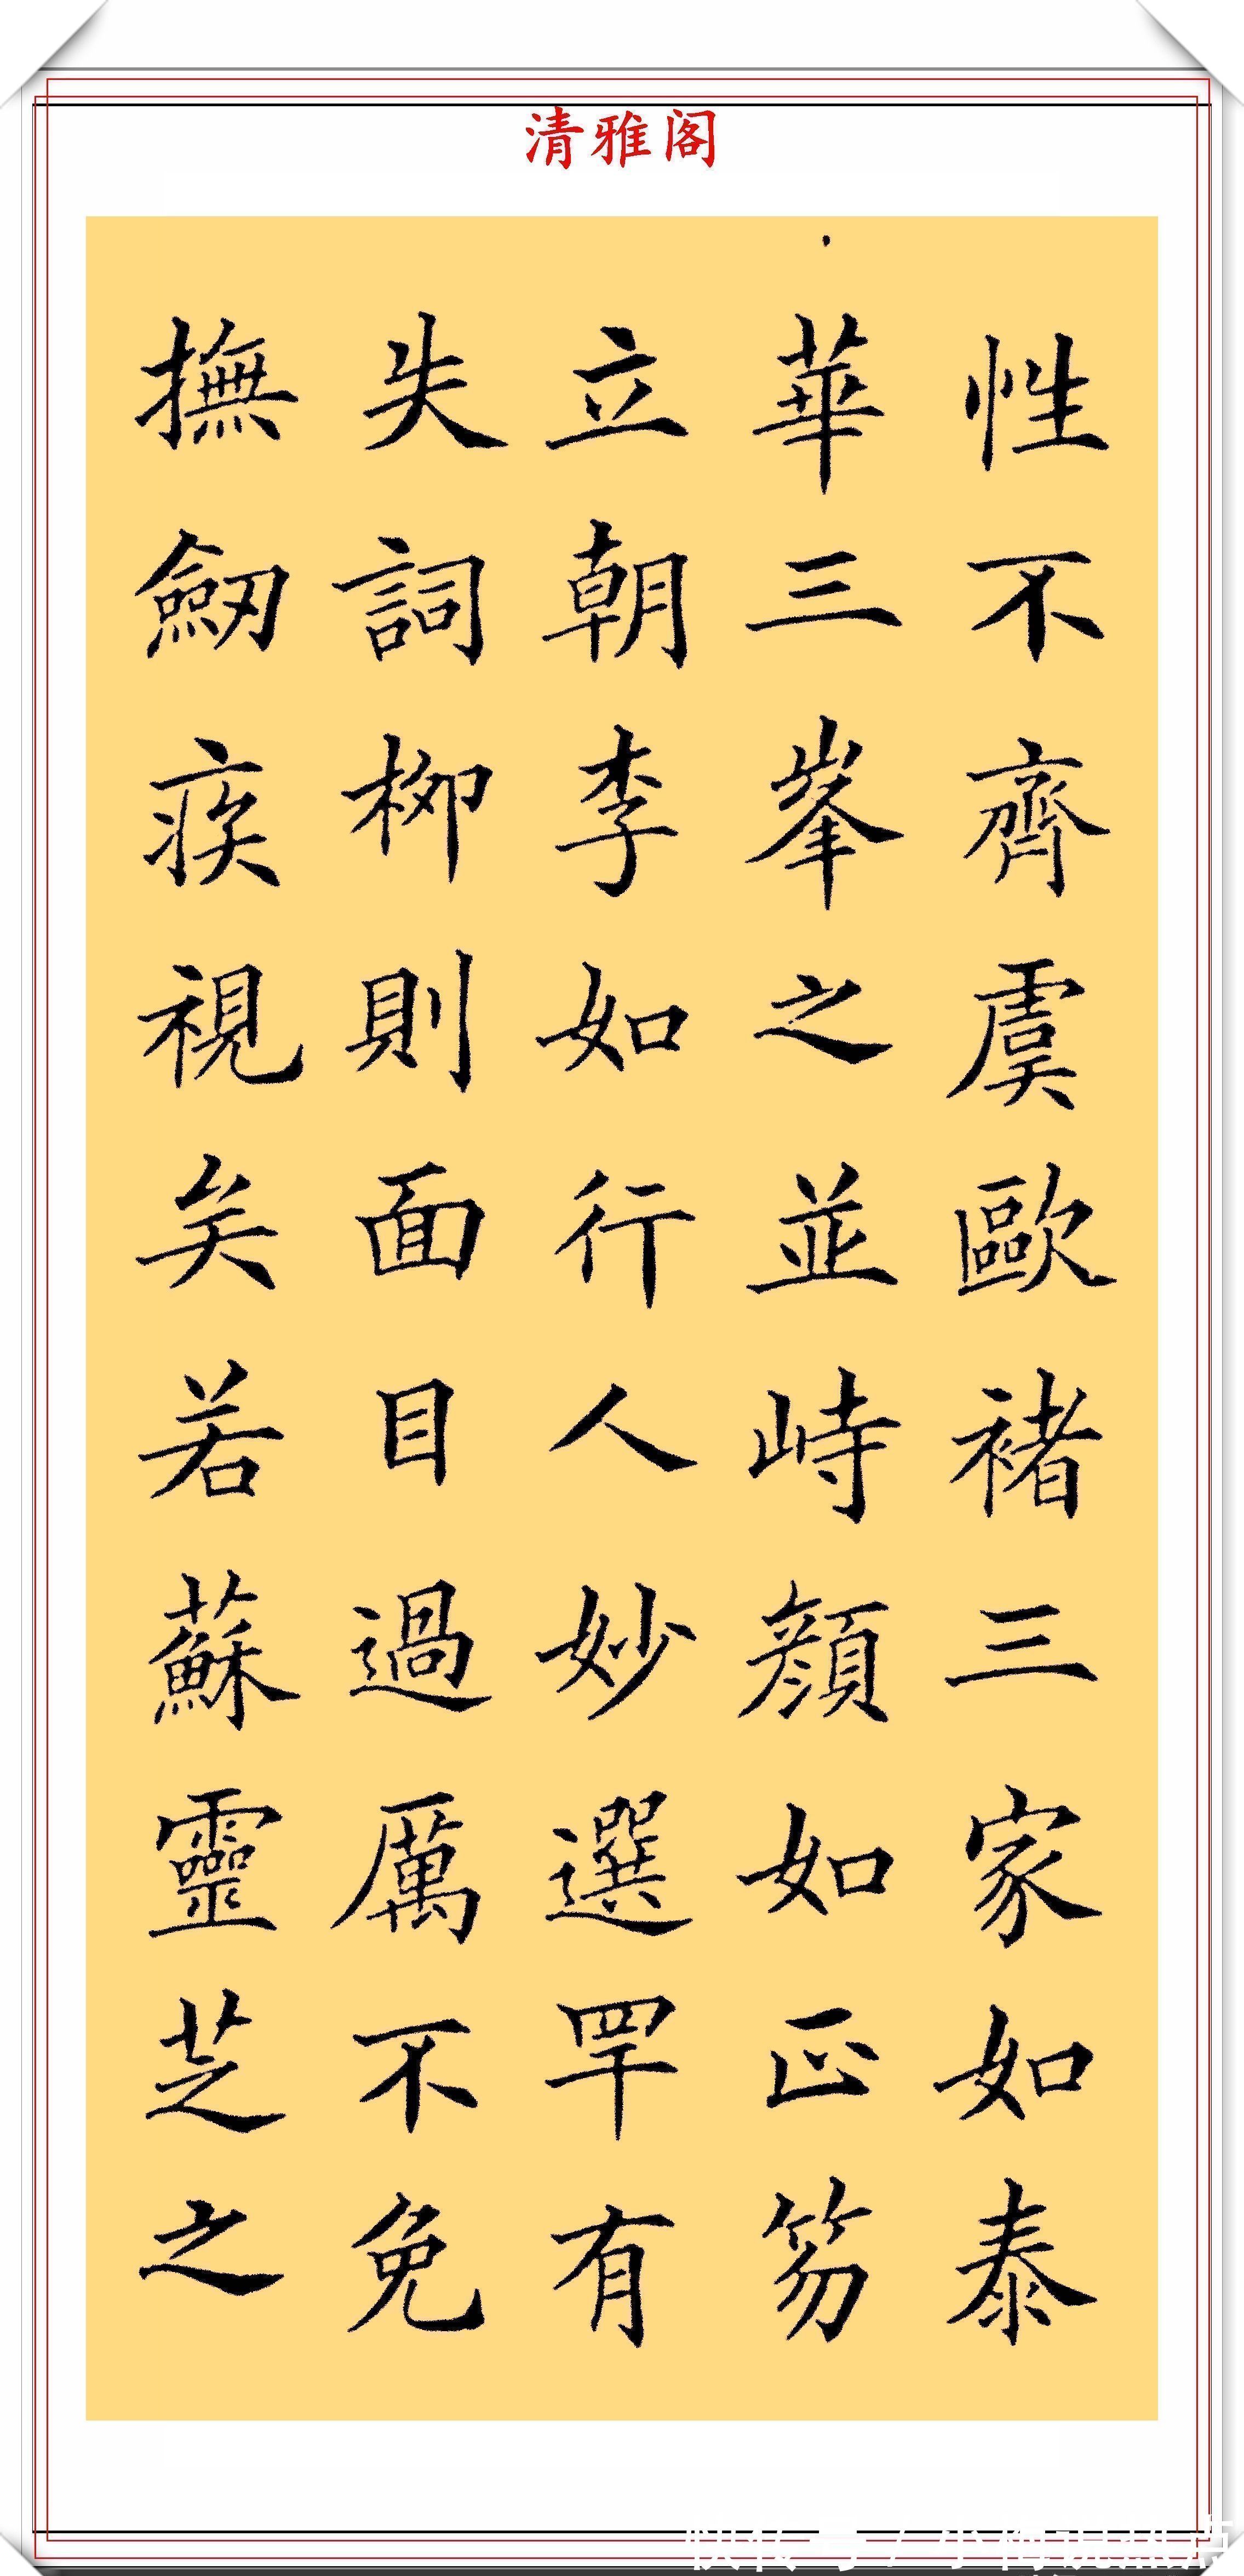 清雅阁
性不齊虞歐褚三家如泰
華三峯之並峙顏如正笏
立朝李如行人妙選罕有
失詞柳則面目過厲不免
撫劒疾視矣若蘇靈芝之